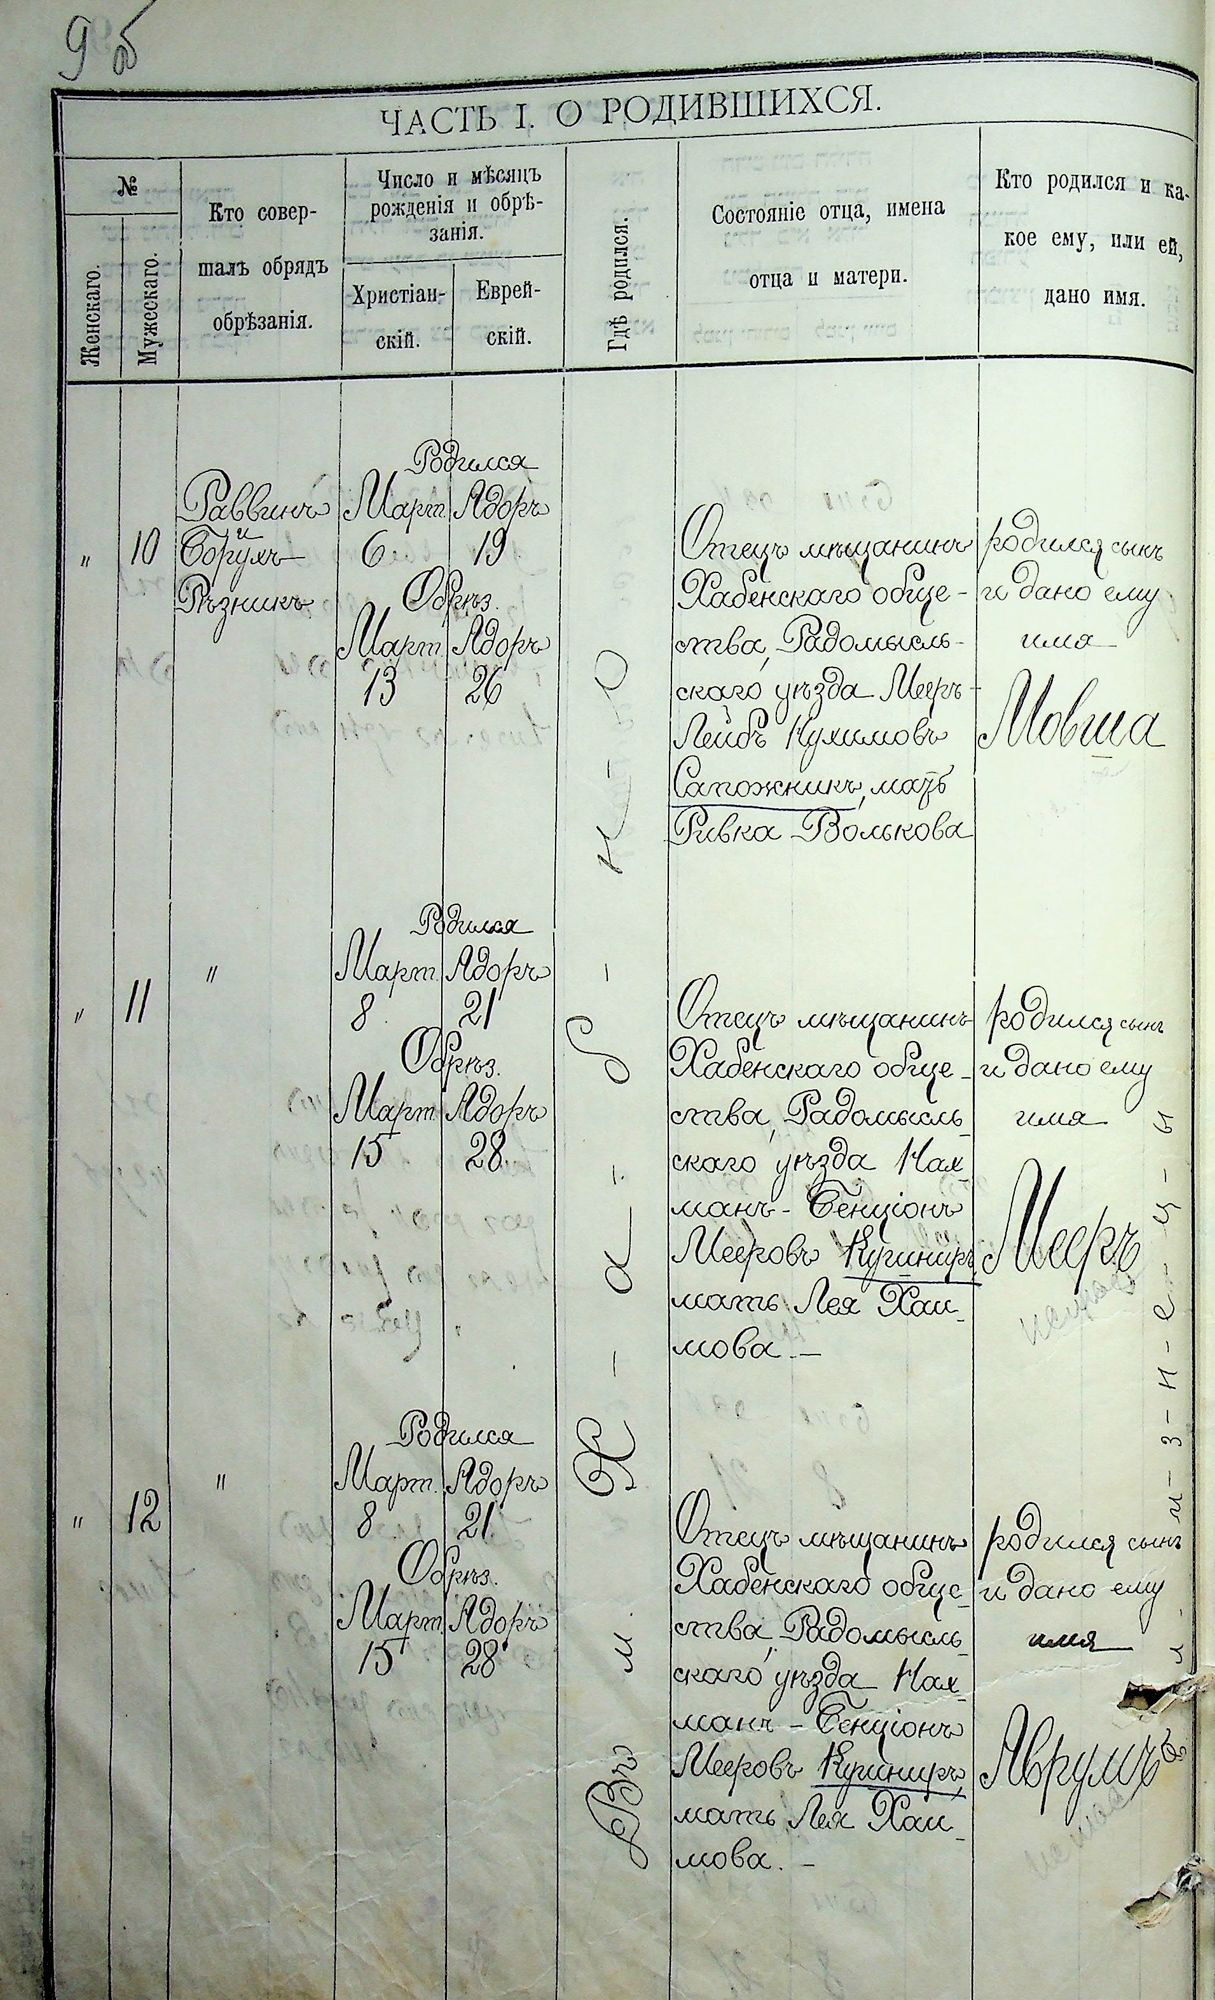 9 об
ЧАСТЬ I. О РОДИВШИХСЯ.
№
Женскаго.
Мужескаго.
Кто совер-
шалъ обрядъ
обрѣзанія.
Число и мѣсяцъ
рожденія и обрѣ-
занія.
Христіан-
скій.
Еврей-
скій.
Гдѣ родился.
Состояніе отца, имена
отца и матери.
Кто родился и ка-
кое ему, или ей,
дано имя.
"
10
Раввинъ
и
Борухъ
Рѣзникъ
Родился
Март. Адоръ
6 19
Обрѣз.
Март. Адоръ
13 26
Отецъ мѣщанинъ
Хабенскаго обще-
ства, Радомысль-
скаго уѣзда Мееръ-
Лейбъ
Сапожникъ, мать
Ривка Волькова
родился сынъ
и дано ему
имя
Мовша
"
11
"
Родился
Март. Адоръ
8 21
Обрѣз.
Март. Адоръ
15 28
Отецъ мѣщанинъ
Хабенскаго обще-
ства, Радомысль-
скаго уѣзда Нах-
манъ-Бенціонъ
Мееровъ Кушниръ,
мать Лея Хаи-
мова.-
родился сынъ
и дано ему
имя
Мееръ
"
12
"
Родился
Март. Адоръ
8 21
Обрѣз.
Март. Адоръ
15 28
Отецъ мѣщанинъ
Хабенскаго обще-
ства, Радомысль-
скаго уѣзда Нах-
манъ-Бенціонъ
Мееровъ Кушниръ,
мать Лея Хаи-
мова.-
родился сынъ
и дано ему
имя
Аврумъ
Въ м. Х-а-б-н-о
б-л-и-з-н-е-ц-ы